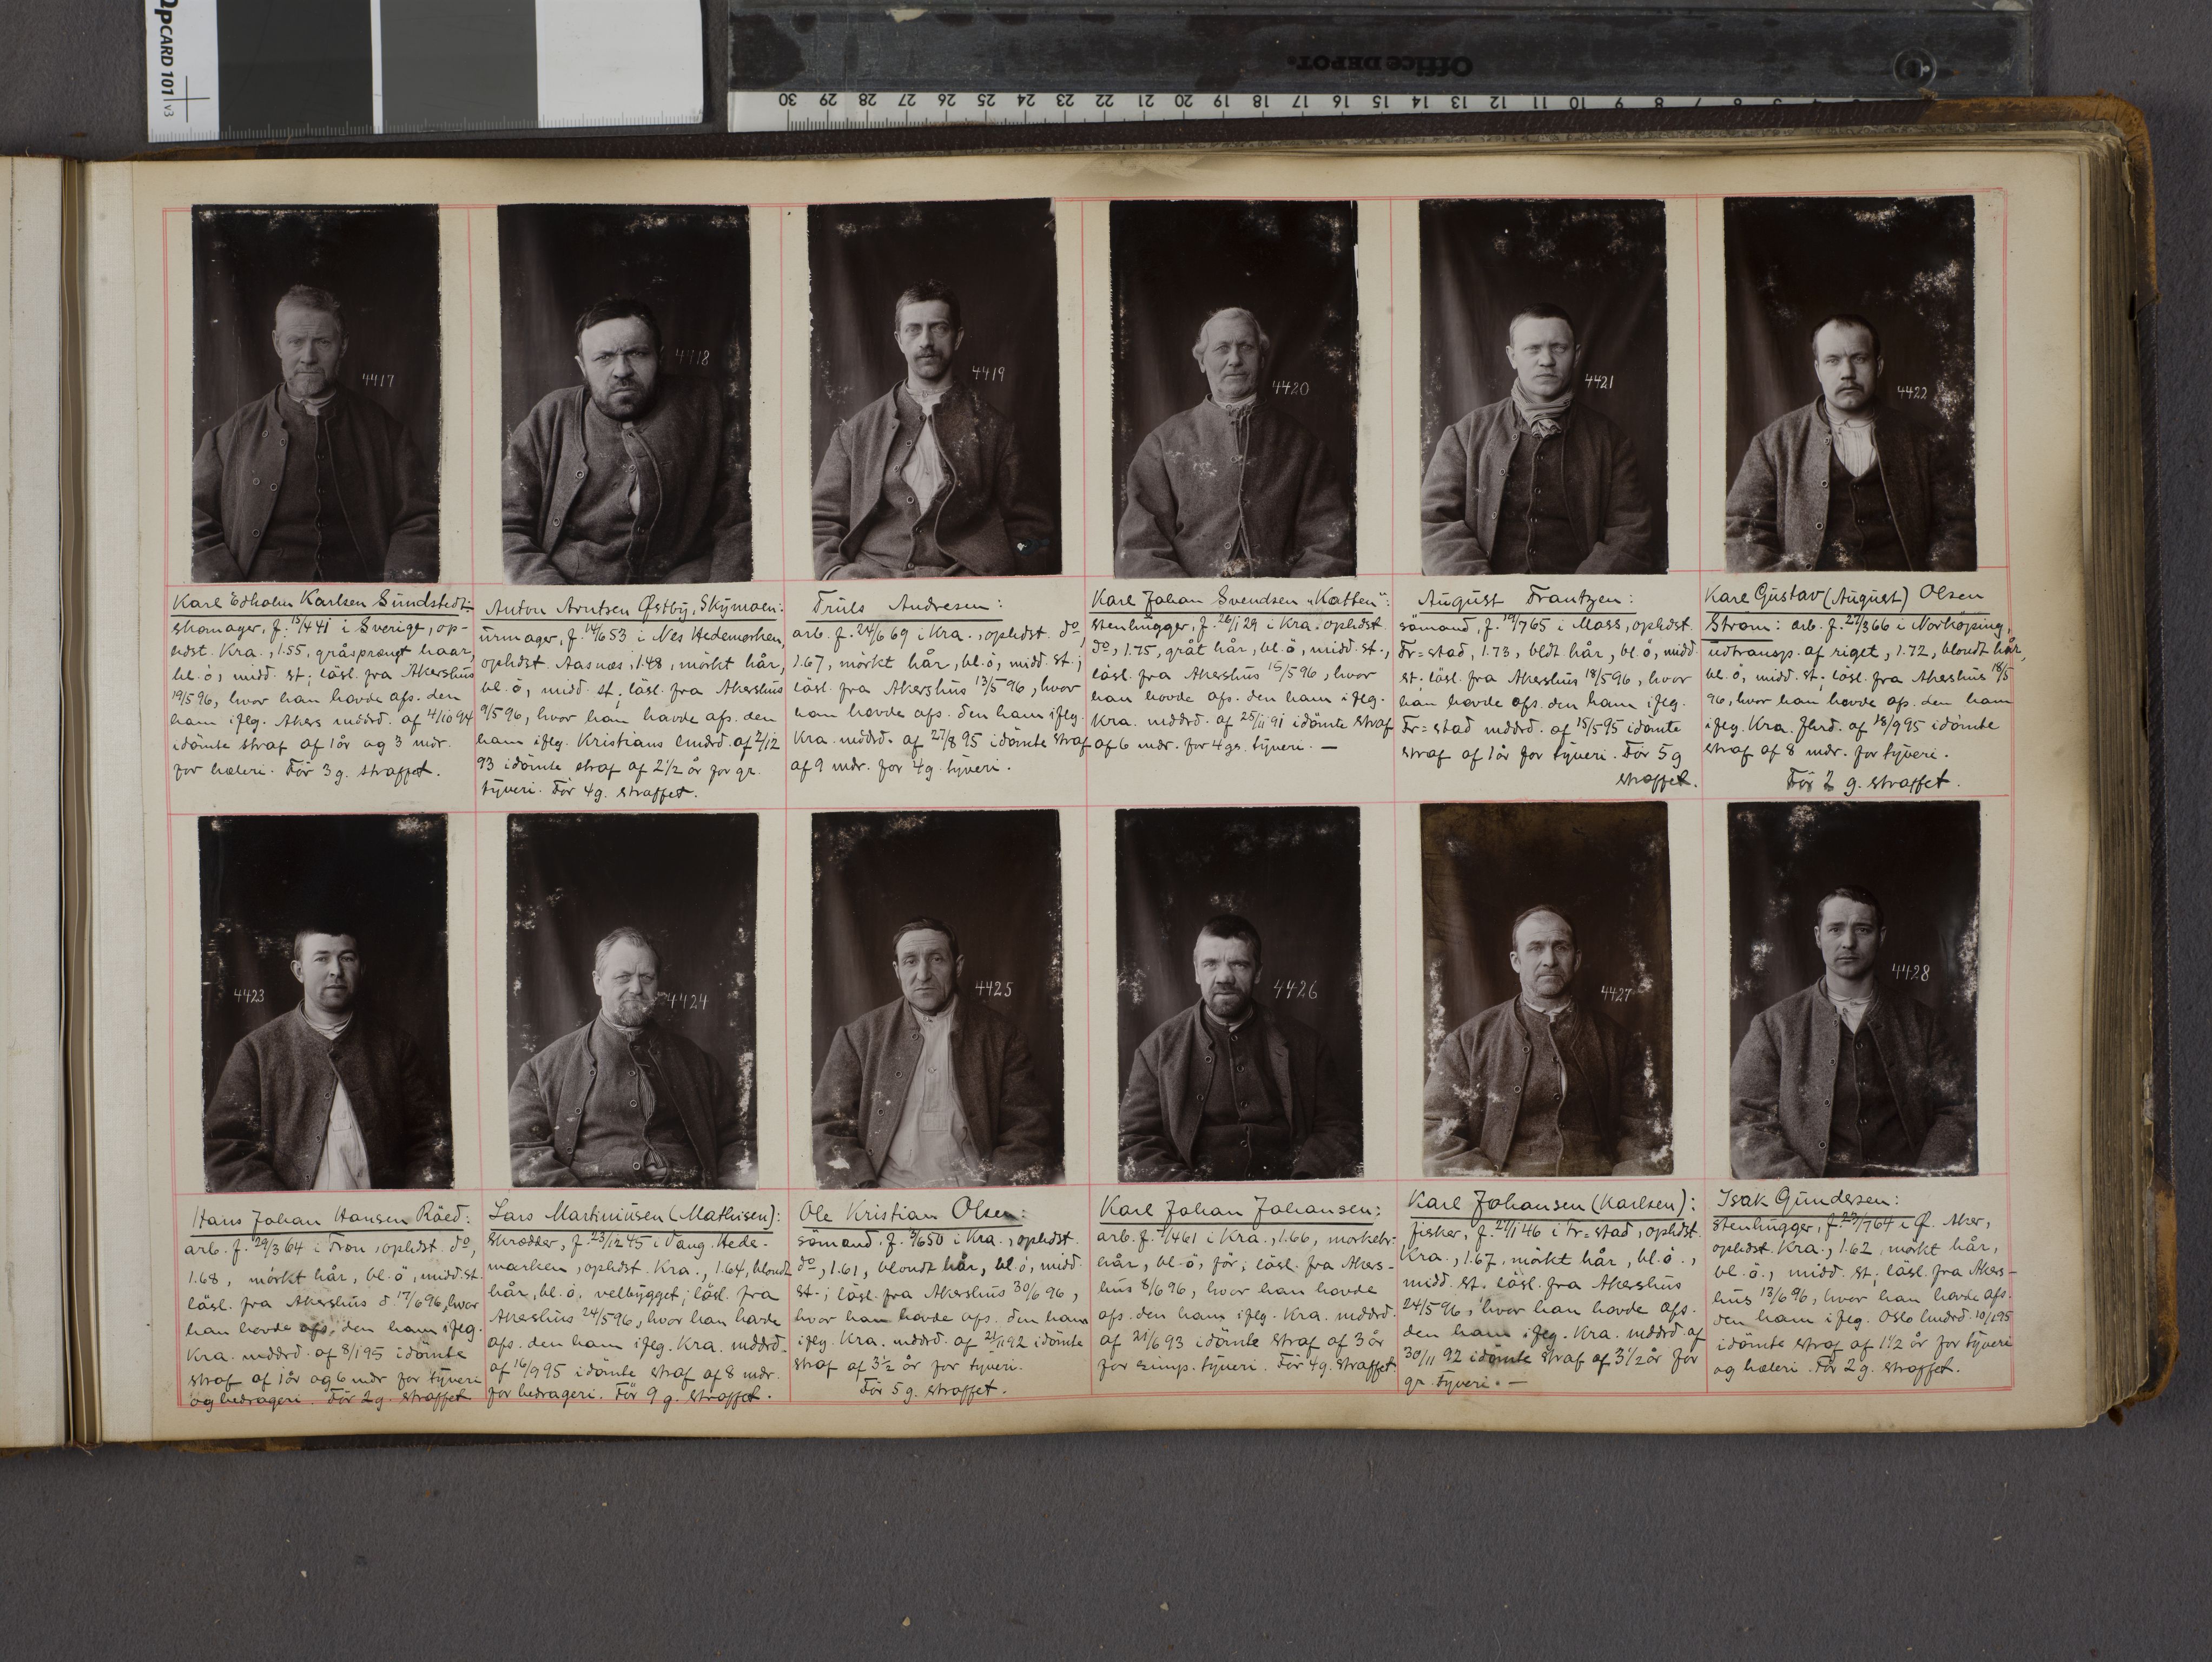 OpCARD 101 v3
Office DEPOT.
30 29 28 27 26 25 24 23 22 21 20 19 18 17 16 15 14 13 12 11 10 9 8 7 6 5 4 3
4417
4418
4419
4420
4421
4422
Karl Edholm Karlsen Sundstedt:
skomager, f. 15/4 41 i Sverige, op-
hdst. Kra., 1.55, gråsprængt haar,
bl. ö, midd. st; lösl. fra Akershus
19/5 96, hvor han havde afs. den
ham iflg. Akers mddrd. af 4/10 94
idömte straf af 1 år og 3 mdr.
for hæleri.För 3 g. straffet.
Anton Arntsen Østby, Skymoen:
urmager, f. 14/6 53 i Nes Hedemarken,
ophdst. Aasnæs, 1.48, mörkt hår,
bl. ö, midd. st; lösl. fra Akershus
9/5 96, hvor han havde afs. den
ham iflg. Kristians lmdrd. af 2/12
93 idömte straf af 2 1/2 år for gr.
tyveri. För 4 g. straffet.
Truls Andresen:
arb. f. 24/6 69 i Kra., ophdst. do,
1.67, mörkt hår, bl. ö, midd. st.;
lösl. fra Akershus 13/5 96, hvor
han havde afs. den ham iflg.
Kra. mddrd. af 27/8 95 idömte straf
af 9 mdr. for 4 g. tyveri.
Karl Johan Svendsen "Katten":
stenhugger, f. 26/1 29 i Kra. ophdst
do, 1.75, gråt hår, bl. ö, midd. st.,
lösl. fra Akershus 15/5 96, hvor
han havde afs. den ham iflg.
Kra. mddrd. af 25/11 91 idömte straf
af 6 mdr. for 4 gr. tyveri. —
August Frantzen:
sömand, f. 19/7 65 i Moss, ophdst.
Fr=stad, 1.73, bldt. hår, bl. ö, midd.
st; lösl. fra Akershus 18/5 96, hvor
han havde afs. den ham iflg.
Fr=stad mddrd. af 15/5 95 idömte
straf af 1 år for tyveri. För 5 g
straffet.
Karl Gustav (August) Olsen
Strøm: arb. f. 27/3 66 i Norköping,
udtransp. af riget, 1.72, blondt hår,
bl. ö, midd. st; lösl. fra Akershus 18/5
96, hvor han havde afs. den ham
iflg. Kra. flrd. af 18/9 95 idömte
straf af 8 mdr. for tyveri.
För 2 g. straffet.
4423
4424
4425
4426
4427
4428
Hans Johan Hansen Röed:
arb. f. 29/3 64 i Tron, ophdst. do,
1.68, mörkt hår, bl. ö, midd. st.
lösl. fra Akershus d. 17/6 96, hvor
han havde afs. den ham iflg.
Kra. mddrd. af 8/1 95 idömte
straf af 1 år og 6 mdr for tyveri
og bedrageri. För 2 g. straffet
Lars Martiniusen (Mathisen):
skrædder, f. 23/12 45 i Vang. Hede-
marken, ophdst. Kra., 1.64, blondt
hår, bl. ö, velbygget; lösl. fra
Akershus 24/5 96, hvor han havde
afs. den ham iflg. Kra. mddrd.
af 16/9 95 idömte straf af 8 mdr.
for bedrageri. För 9 g. straffet.
Ole Kristian Olsen:
sömand. f. 9/6 50 i Kra., ophdst.
do, 1.61, blondt hår, bl. ö, midd.
st.; lösl. fra Akershus 30/6 96,
hvor han havde afs. den ham
iflg. Kra. mddrd. af 21/1 92 idömte
straf af 3 1/2 år for tyveri.
För 5 g. straffet.
Karl Johan Johansen:
arb. f. 1/4 61 i Kra., 1.66, morkebr.
hår, bl. ö, för; lösl. fra Akers-
hus 8/6 96, hvor han havde
afs. den ham iflg. Kra. mddrd.
af 21/6 93 idömte straf af 3 år
for simp. tyveri. För 4 g. straffet.
Karl Johansen (Karlsen):
fisker, f. 21/1 46 i Fr=stad, ophdst.
Kra., 1.67, mörkt hår, bl. ö.,
midd. st. lösl. fra Akershus
24/5 96, hvor han havde afs.
den ham iflg. Kra. mddrd. af
30/11 92 idömte straf af 3 1/2 år for
gr. tyveri. —
Isak Gundersen:
stenhugger, f. 29/7 64 i Ø. Aker,
ophdst. Kra., 1.62, mörkt hår,
bl. ö., midd. st, lösl. fra Akers-
hus 13/6 96, hvor han havde afs.
den ham iflg. Oslo lmdrd. 10/1 95
idömte straf af 1 1/2 år for tyveri
og hæleri. För 2 g. straffet.